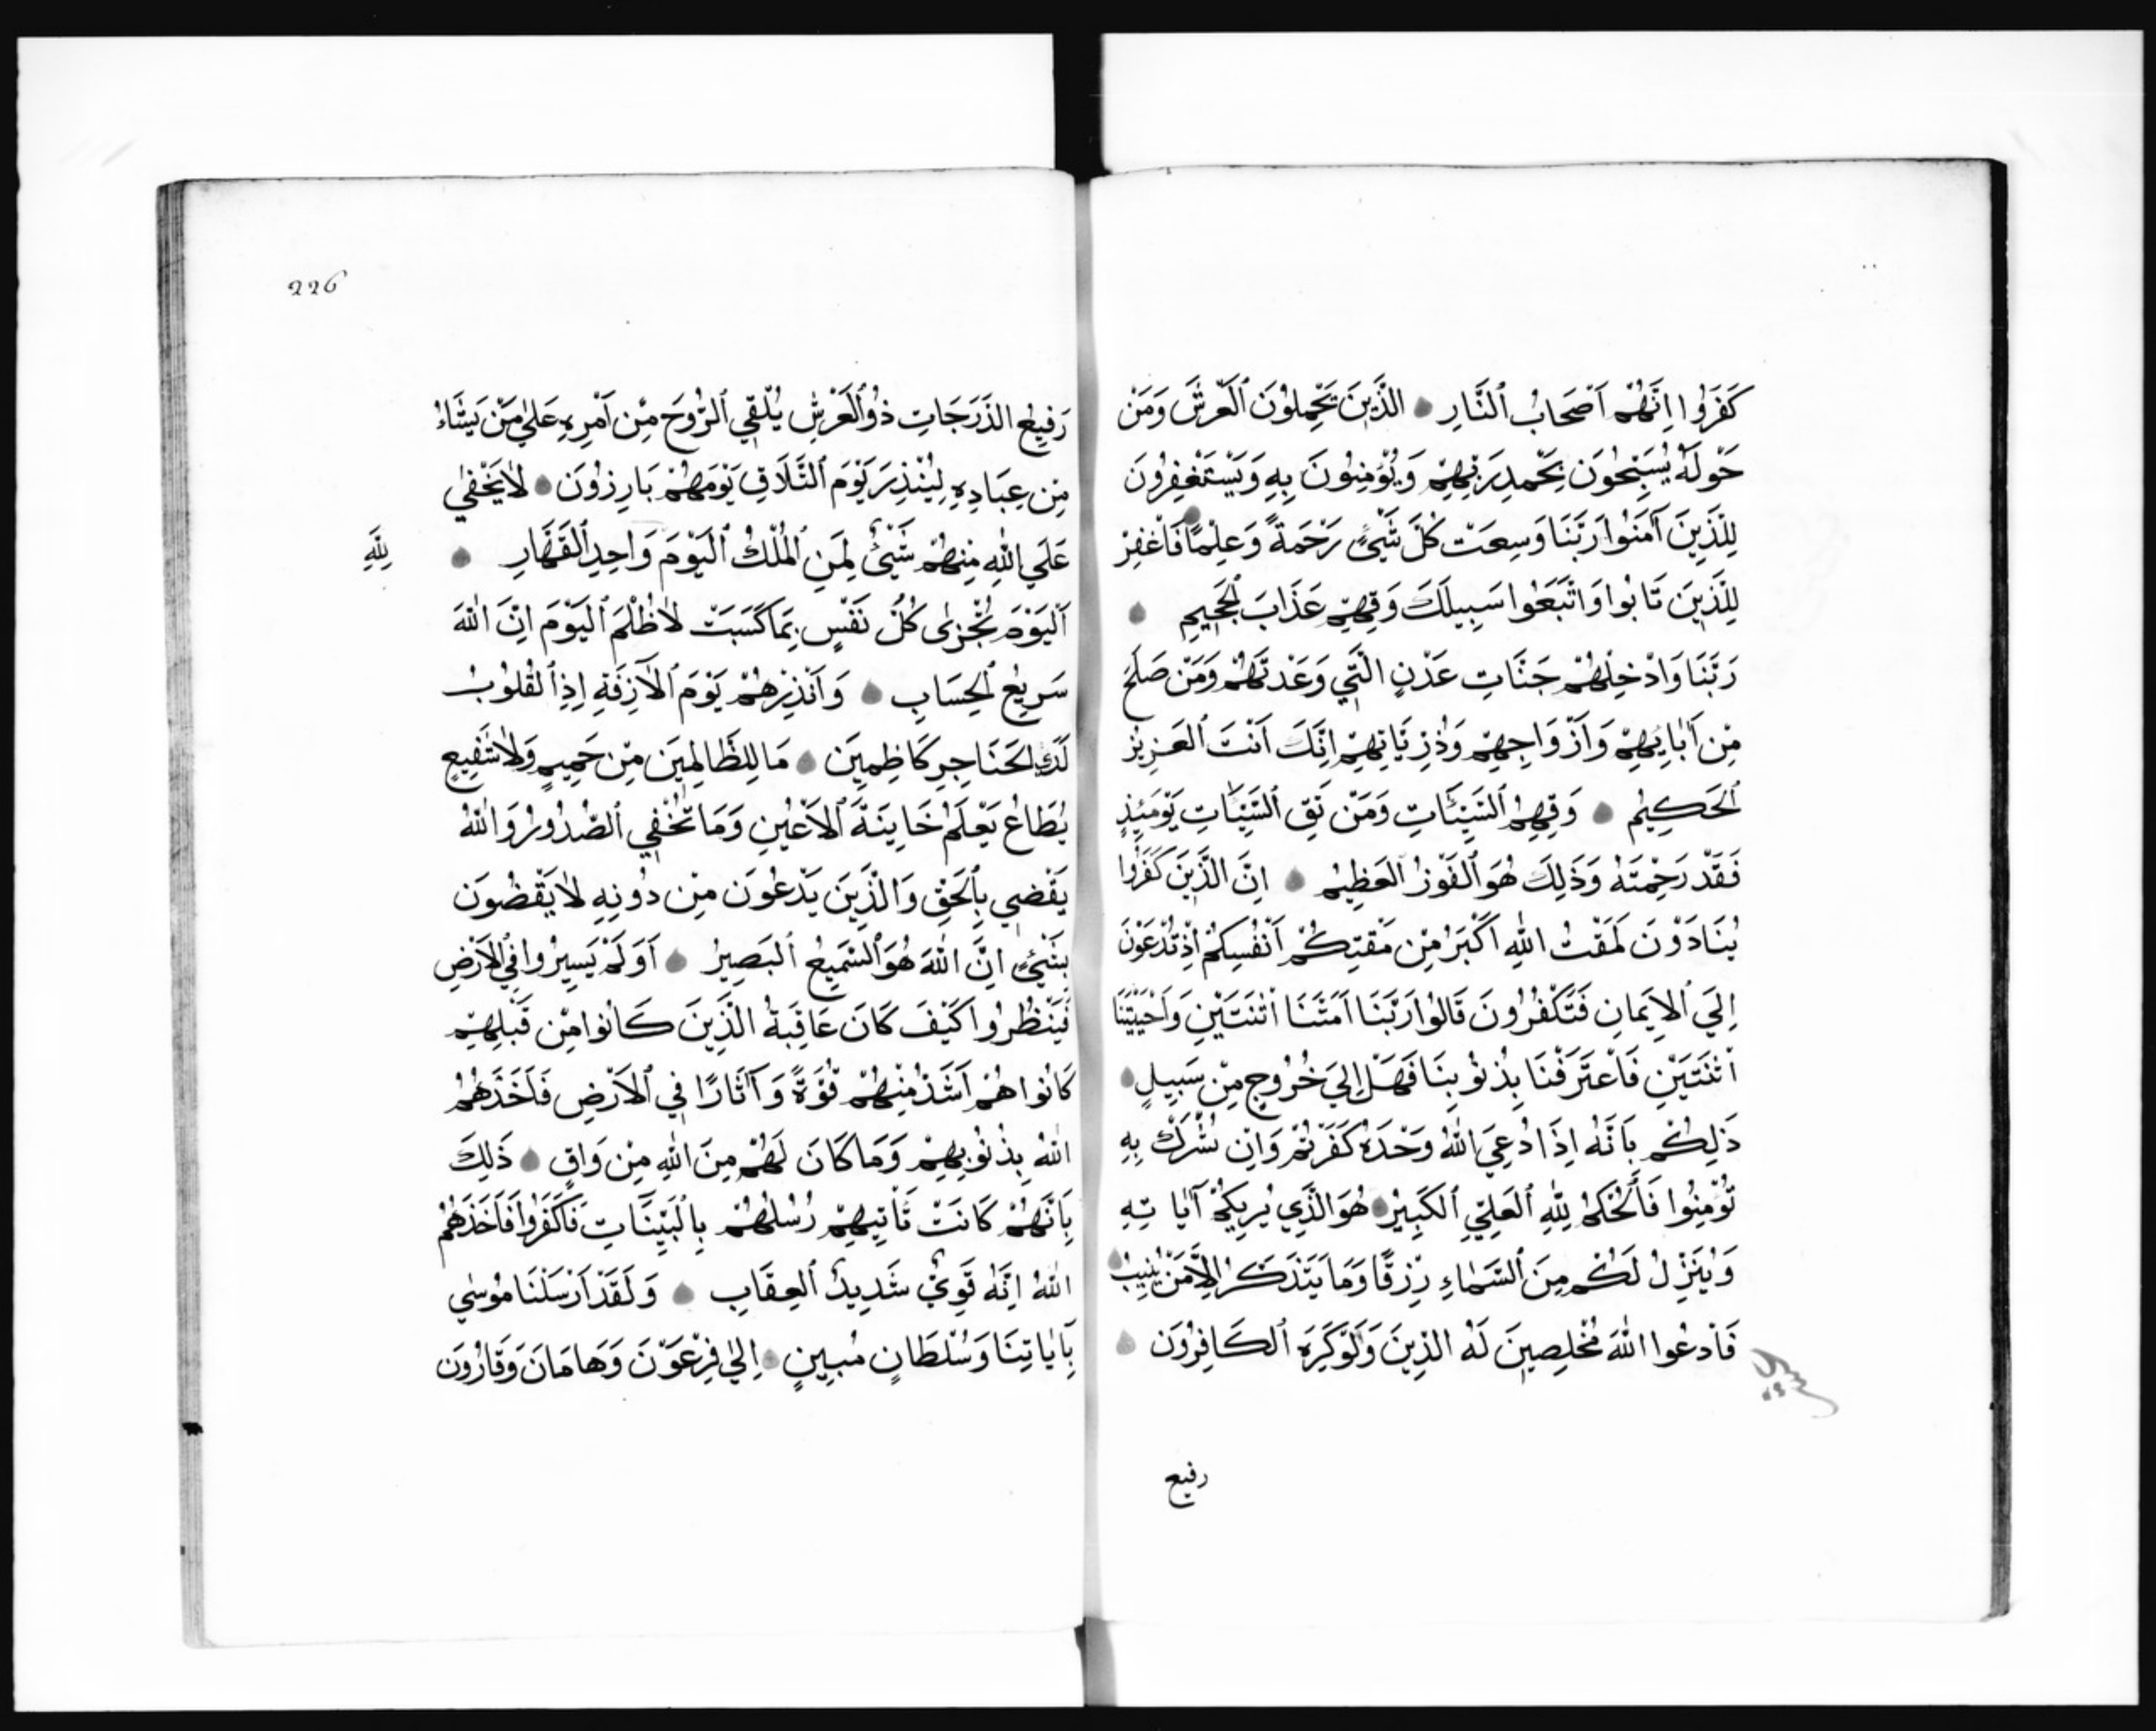 كَفَرُوا اِنَّهُمْ اَصْحَابُ ٱلنَّارِ الَّذِينَ يَحْمِلُونَ ٱلْعَرْشَ وَمَنْ
حَوْلَهُ يُسَبِّحُونَ بِحَمْدِ رَبِّهِمْ وَيُؤْمِنُونَ بِهِ وَيَسْتَغْفِرُونَ
لِلَّذِينَ آمَنُوا رَبَّنَا وَسِعْتَ كُلَّ شَيْئٍ رَحْمَةً وَعِلْمًا فَاغْفِرْ
لِلَّذِينَ تَابُوا وَاتَّبَعُوا سَبِيلَكَ وَقِهِمْ عَذَابَ ٱلْجَحِيمِ
رَبَّنَا وَادْخِلْهُمْ جَنَّاتِ عَدْنٍ الَّتِي وَعَدْتَهُمْ وَمَنْ صَلَحَ
مِنْ اٰبَايِهِمْ وَاَزْوَاجِهِمْ وَذُرِّيَّاتِهِمْ اِنَّكَ اَنْتَ ٱلْعَزِيزُ
ٱلْحَكِيمُ وَقِهِمُ ٱلسَّيِّئَاتِ وَمَنْ تَقِ ٱلسَّيِّئَاتِ يَوْمَئِذٍ
فَقَدْ رَحِمْتَهُ وَذَلِكَ هُوَ ٱلْفَوْزُ ٱلْعَظِيمُ اِنَّ الَّذِينَ كَفَرُوا
يُنَادَوْنَ لَمَقْتُ اللّٰهِ اَكْبَرُ مِنْ مَقْتِكُمْ اَنْفُسَكُمْ اِذْ تُدْعَوْنَ
اِلَيَ ٱلْاِيمَانِ فَتَكْفُرُونَ قَالُوا رَبَّنَا اَمَتَّنَا اثْنَتَيْنِ وَاَحْيَيْتَنَا
اثْنَتَيْنِ فَاعْتَرَفْنَا بِذُنُوبِنَا فَهَلْ اِلَيَ خُرُوجٍ مِنْ سَبِيلٍ
ذَلِكُمْ بِاَنَّهُ اِذَا دُعِيَ اللّٰهُ وَحْدَهُ كَفَرْتُمْ وَاِنْ يُشْرَكْ بِهِ
تُؤْمِنُوا فَٱلْحُكْمُ لِلّٰهِ ٱلْعَلِيِّ ٱلْكَبِيرُ هُوَ الَّذِي يُرِيكُمْ آيَاتِهِ
وَيُنَزِّلُ لَكُمْ مِنَ ٱلسَّمَاءِ رِزْقًا وَمَا يَتَذَكَّرُ اِلَّا مَنْ يُنِيبُ
فَادْعُوا اللّٰهَ مُخْلِصِينَ لَهُ الدِّينَ وَلَوْ كَرِهَ ٱلْكَافِرُونَ
رفيع
226
رَفِيعُ الدَّرَجَاتِ ذُو ٱلْعَرْشِ يُلْقِي ٱلرُّوحَ مِنْ اَمْرِهِ عَلَىٰ مَنْ يَشَاءُ
مِنْ عِبَادِهِ لِيُنْذِرَ يَوْمَ ٱلتَّلَاقِ يَوْمَهُمْ بَارِزُونَ لَا يَخْفَىٰ
عَلَي اللّٰهِ مِنْهُمْ شَيْئٌ لِمَنِ ٱلْمُلْكُ ٱلْيَوْمَ وَاحِدِ ٱلْقَهَّارِ
لِلَّهِ
اَلْيَوْمَ تُجْزٰى كُلُّ نَفْسٍ بِمَا كَسَبَتْ لَا ظُلْمَ ٱلْيَوْمَ اِنَّ اللّٰهَ
سَرِيعُ ٱلْحِسَابِ وَاَنْذِرْهُمْ يَوْمَ ٱلْآزِفَةِ اِذِ ٱلْقُلُوبُ
لَدَي الْحَنَاجِرِ كَاظِمِينَ مَا لِلظَّالِمِينَ مِنْ حَمِيمٍ وَلَا شَفِيعٍ
يُطَاعُ يَعْلَمُ خَايِنَةَ ٱلْاَعْيُنِ وَمَا تُخْفِي ٱلصُّدُورُ وَاللّٰهُ
يَقْضِي بِٱلْحَقِّ وَالَّذِينَ يَدْعُونَ مِنْ دُونِهِ لَا يَقْضُونَ
بِشَيْئٍ اِنَّ اللّٰهَ هُوَ ٱلسَّمِيعُ ٱلْبَصِيرُ اَوَلَمْ يَسِيرُوا فِي ٱلْاَرْضِ
فَيَنْظُرُوا كَيْفَ كَانَ عَاقِبَةُ الَّذِينَ كَانُوا مِنْ قَبْلِهِمْ
كَانُوا هُمْ اَشَدَّ مِنْهُمْ قُوَّةً وَآثَارًا فِي ٱلْاَرْضِ فَاَخَذَهُمُ
اللّٰهُ بِذُنُوبِهِمْ وَمَا كَانَ لَهُمْ مِنَ اللّٰهِ مِنْ وَاقٍ ذَلِكَ
بِاَنَّهُمْ كَانَتْ تَأْتِيهِمْ رُسُلُهُمْ بِالْبَيِّنَاتِ فَكَفَرُوا فَاَخَذَهُمُ
اللّٰهُ اِنَّهُ قَوِيٌّ شَدِيدُ ٱلْعِقَابِ وَلَقَدْ اَرْسَلْنَا مُوسٰي
بِاٰيَاتِنَا وَسُلْطَانٍ مُبِينٍ اِلٰي فِرْعَوْنَ وَهَامَانَ وَقَارُونَ